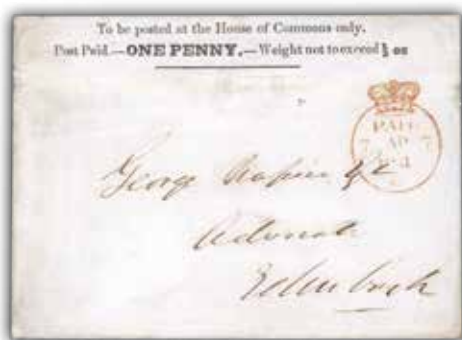 To be posted at the House of Commons only.
Post Paid.—ONE PENNY.—Weight not to exceed ½ oz
PAID
7 AP 7
George
Advocate
Edinburgh